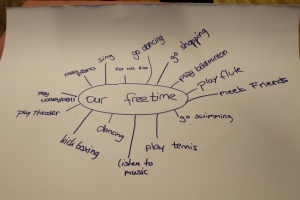 our freetime
sing
go dancing
go shopping
play badminton
play flute
meet Friends
go swimming
play tennis
listen to
music
dancing
kick boxing
play Theater
play
volleyball